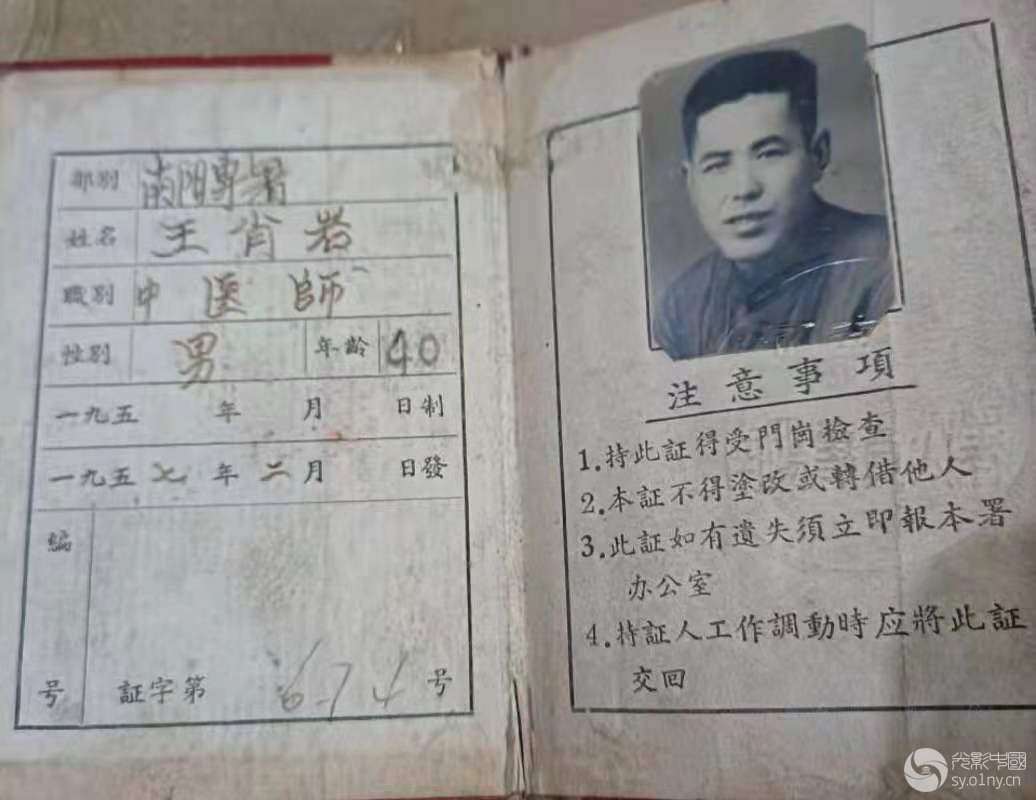 部别 南阳專署
姓名 王肖岩
職别 中医師
性别 男 年齡 40
一九五 年 月 日制
一九五七年二月 日發
編号 証字第 674 号
注意事項
1.持此証得受門崗檢查
2.本証不得塗改或轉借他人
3.此証如有遺失須立即報本署
办公室
4.持証人工作調動時应將此証
交回
光影中國
sy.o1ny.cn